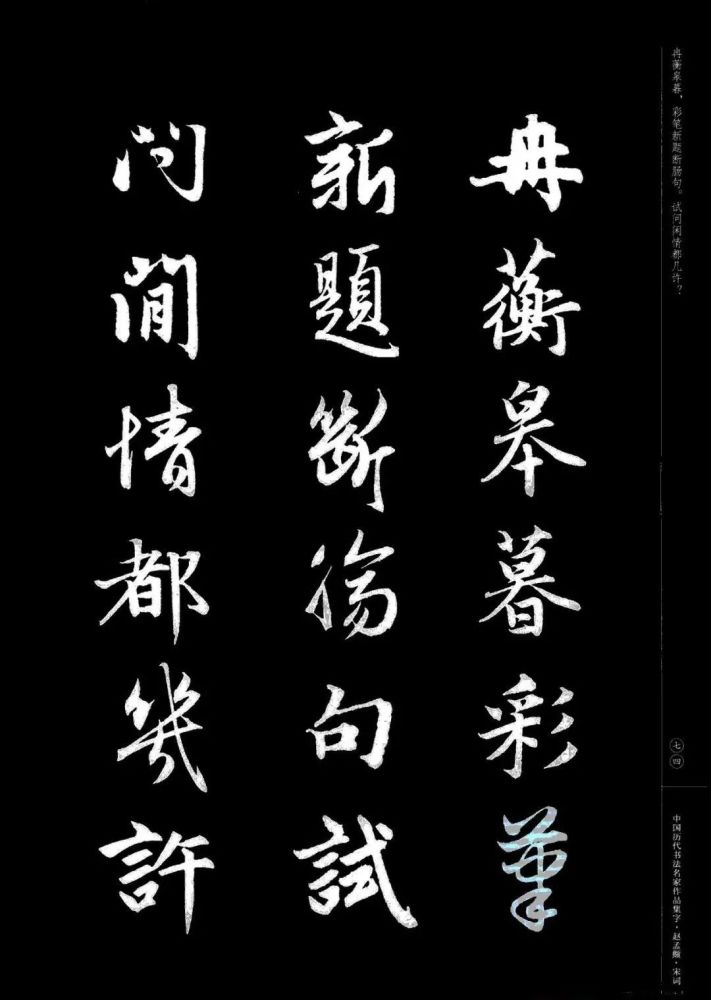 冉蘅皋暮彩筆
新題斷腸句試
問閒情都幾許
冉蘅皋暮，彩笔新题断肠句。试问闲情都几许？
七四
中国历代书法名家作品集字·赵孟頫·宋词